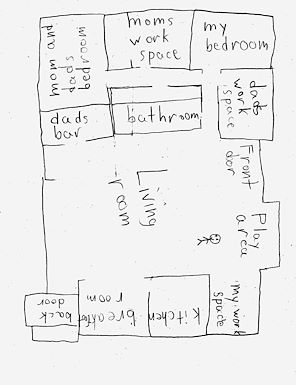 mom and
dads
bedroom
moms
work
space
my
bedroom
dads
bar
bathroom
dads
work
space
Front
dor
Living
room
Play
area
back
door
breakfast
room
kitchen
my work
space